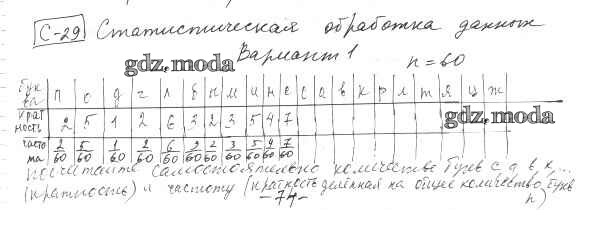 С-29 Статистическая обработка данных
Вариант 1 n = 60
gdz.moda
Буква П о д ч л б ы м и н е с а в к р л т я ц ж
кратность 2 5 1 2 6 3 2 3 5 4 7
gdz.moda
частота 2/60 5/60 1/60 2/60 6/60 3/60 2/60 3/60 5/60 4/60 7/60
посчитайте самостоятельно количество букв с, а, в, к, ...
(кратность) и частоту (кратность делённая на общее количество букв n)
- 74 -